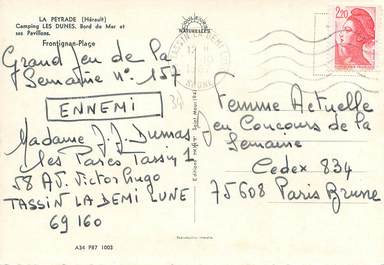 LA PEYRADE (Hérault)
Camping LES DUNES. Bord du Mer et
ses Pavillons.
Frontignan-Plage
NATURELLES
2,20
Grand Jeu de la
Semaine n° 157
ENNEMI
Madame J.J. Dumas
les Parcs Tassin 1
58 AV. Victor Hugo
TASSIN LA DEMI LUNE
69160
Femme Actuelle
Jeu Concours de la
Semaine
Cedex 834
75608 Paris Brune
A34 P87 1003
Reproduction interdite